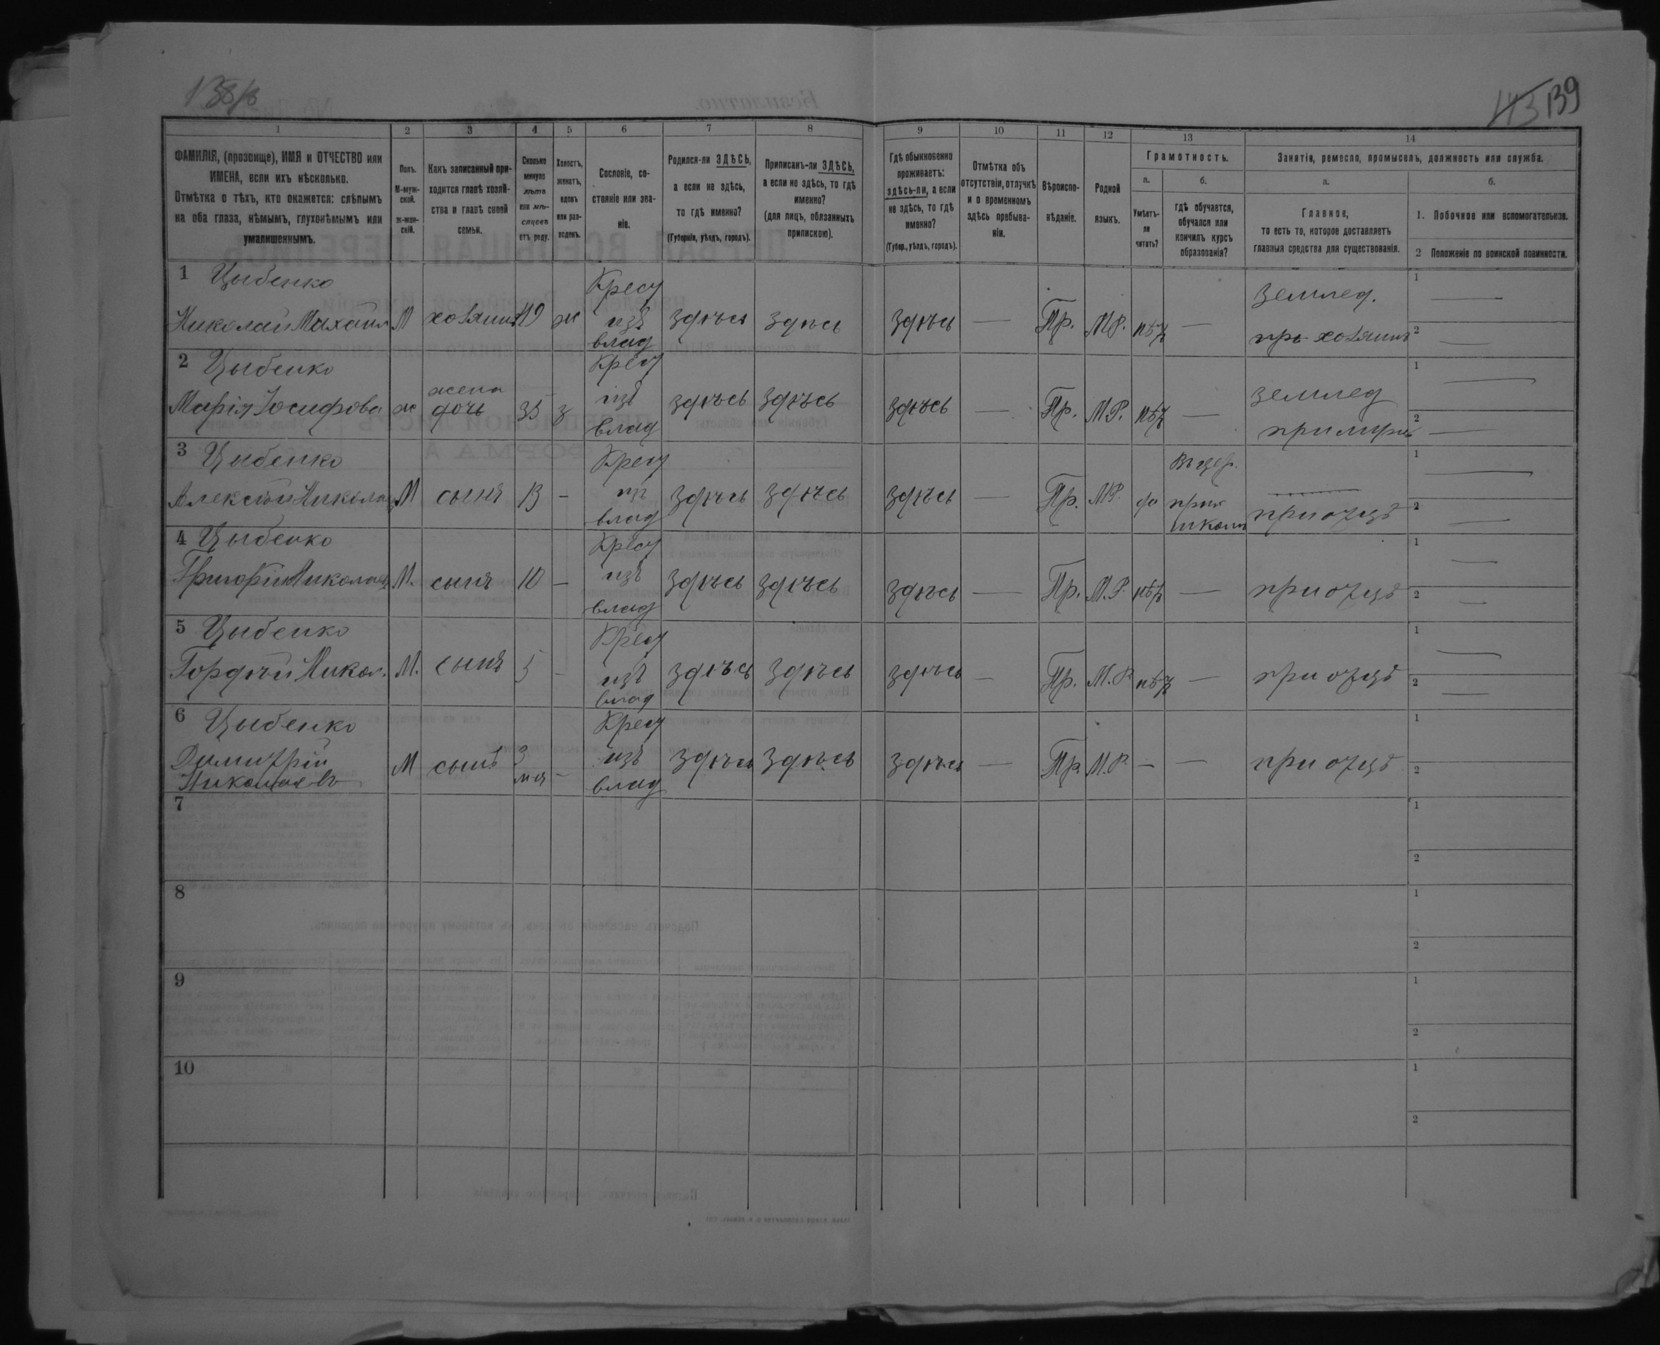 138/б
143 139
1 2 3 4 5 6 7 8 9 10 11 12 13 14
ФАМИЛІЯ, (прозвище), ИМЯ и ОТЧЕСТВО или ИМЕНА, если ихъ нѣсколько.
Отмѣтка о тѣхъ, кто окажется: слѣпымъ на оба глаза, нѣмымъ, глухонѣмымъ или умалишеннымъ.
Полъ.
М-муж-
ской.
ж-жен-
скій.
Какъ записанный при-
ходится главѣ хозяй-
ства и главѣ своей
семьи.
Сколько
минуло
лѣтъ
или мѣ-
сяцевъ
отъ роду.
Холостъ,
женатъ,
вдовъ
или раз-
веденъ.
Сословіе, со-
стояніе или зва-
ніе.
Родился-ли ЗДѢСЬ,
а если не здѣсь,
то гдѣ именно?
(Губернія, уѣздъ, городъ).
Приписанъ-ли ЗДѢСЬ,
а если не здѣсь, то гдѣ
именно?
(для лицъ, обязанныхъ
припискою).
Гдѣ обыкновенно
проживаетъ:
здѣсь-ли, а если
не здѣсь, то гдѣ
именно?
(Губер., уѣздъ, городъ).
Отмѣтка объ
отсутствіи, отлучкѣ
и о временномъ
здѣсь пребыва-
ніи.
Вѣроиспо-
вѣданіе.
Родной
языкъ.
Грамотность.
а.
Умѣетъ-
ли
читать?
б.
гдѣ обучается,
обучался или
кончилъ курсъ
образованія?
Занятіе, ремесло, промыселъ, должность или служба.
а.
Главное,
то есть то, которое доставляетъ
главныя средства для существованія.
б.
1. Побочное или вспомогательное.
2 Положеніе по воинской повинности.
1 Цыбенко Крест Землед. 1
Николай Михаил М хозяинъ ж изъ здѣсь здѣсь здѣсь — Пр. М.Р. нѣт — пр. хозяинъ 2
влад
2 Цыбенко Крест 1
жена изъ Землед
Марія Іосифова ж дочь 35 з влад здѣсь здѣсь здѣсь — Пр. М.Р. нѣт — при мужѣ 2
3 Цыбенко Крест Въ цер. 1
Алексѣй Николаев М сынъ 13 - из здѣсь здѣсь здѣсь — Пр. М.Р. да прих при отцѣ 2
влад школѣ
4 Цыбенко Крест 1
Григорій Николаев М. сынъ 10 — изъ здѣсь здѣсь здѣсь — Пр. М.Р. нѣт — при отцѣ 2
влад
5 Цыбенко Крест 1
Гордѣй Никол. М. сынъ 5 - изъ здѣсь здѣсь здѣсь — Пр. М.Р. нѣт — при отцѣ 2
влад
6 Цыбенко Крест 1
Димитрій М сынъ 3 изъ здѣсь здѣсь здѣсь — Пр М.Р — — при отцѣ 2
Николаевъ мѣс — влад
7 1
2
8 1
2
9 1
2
10 1
2